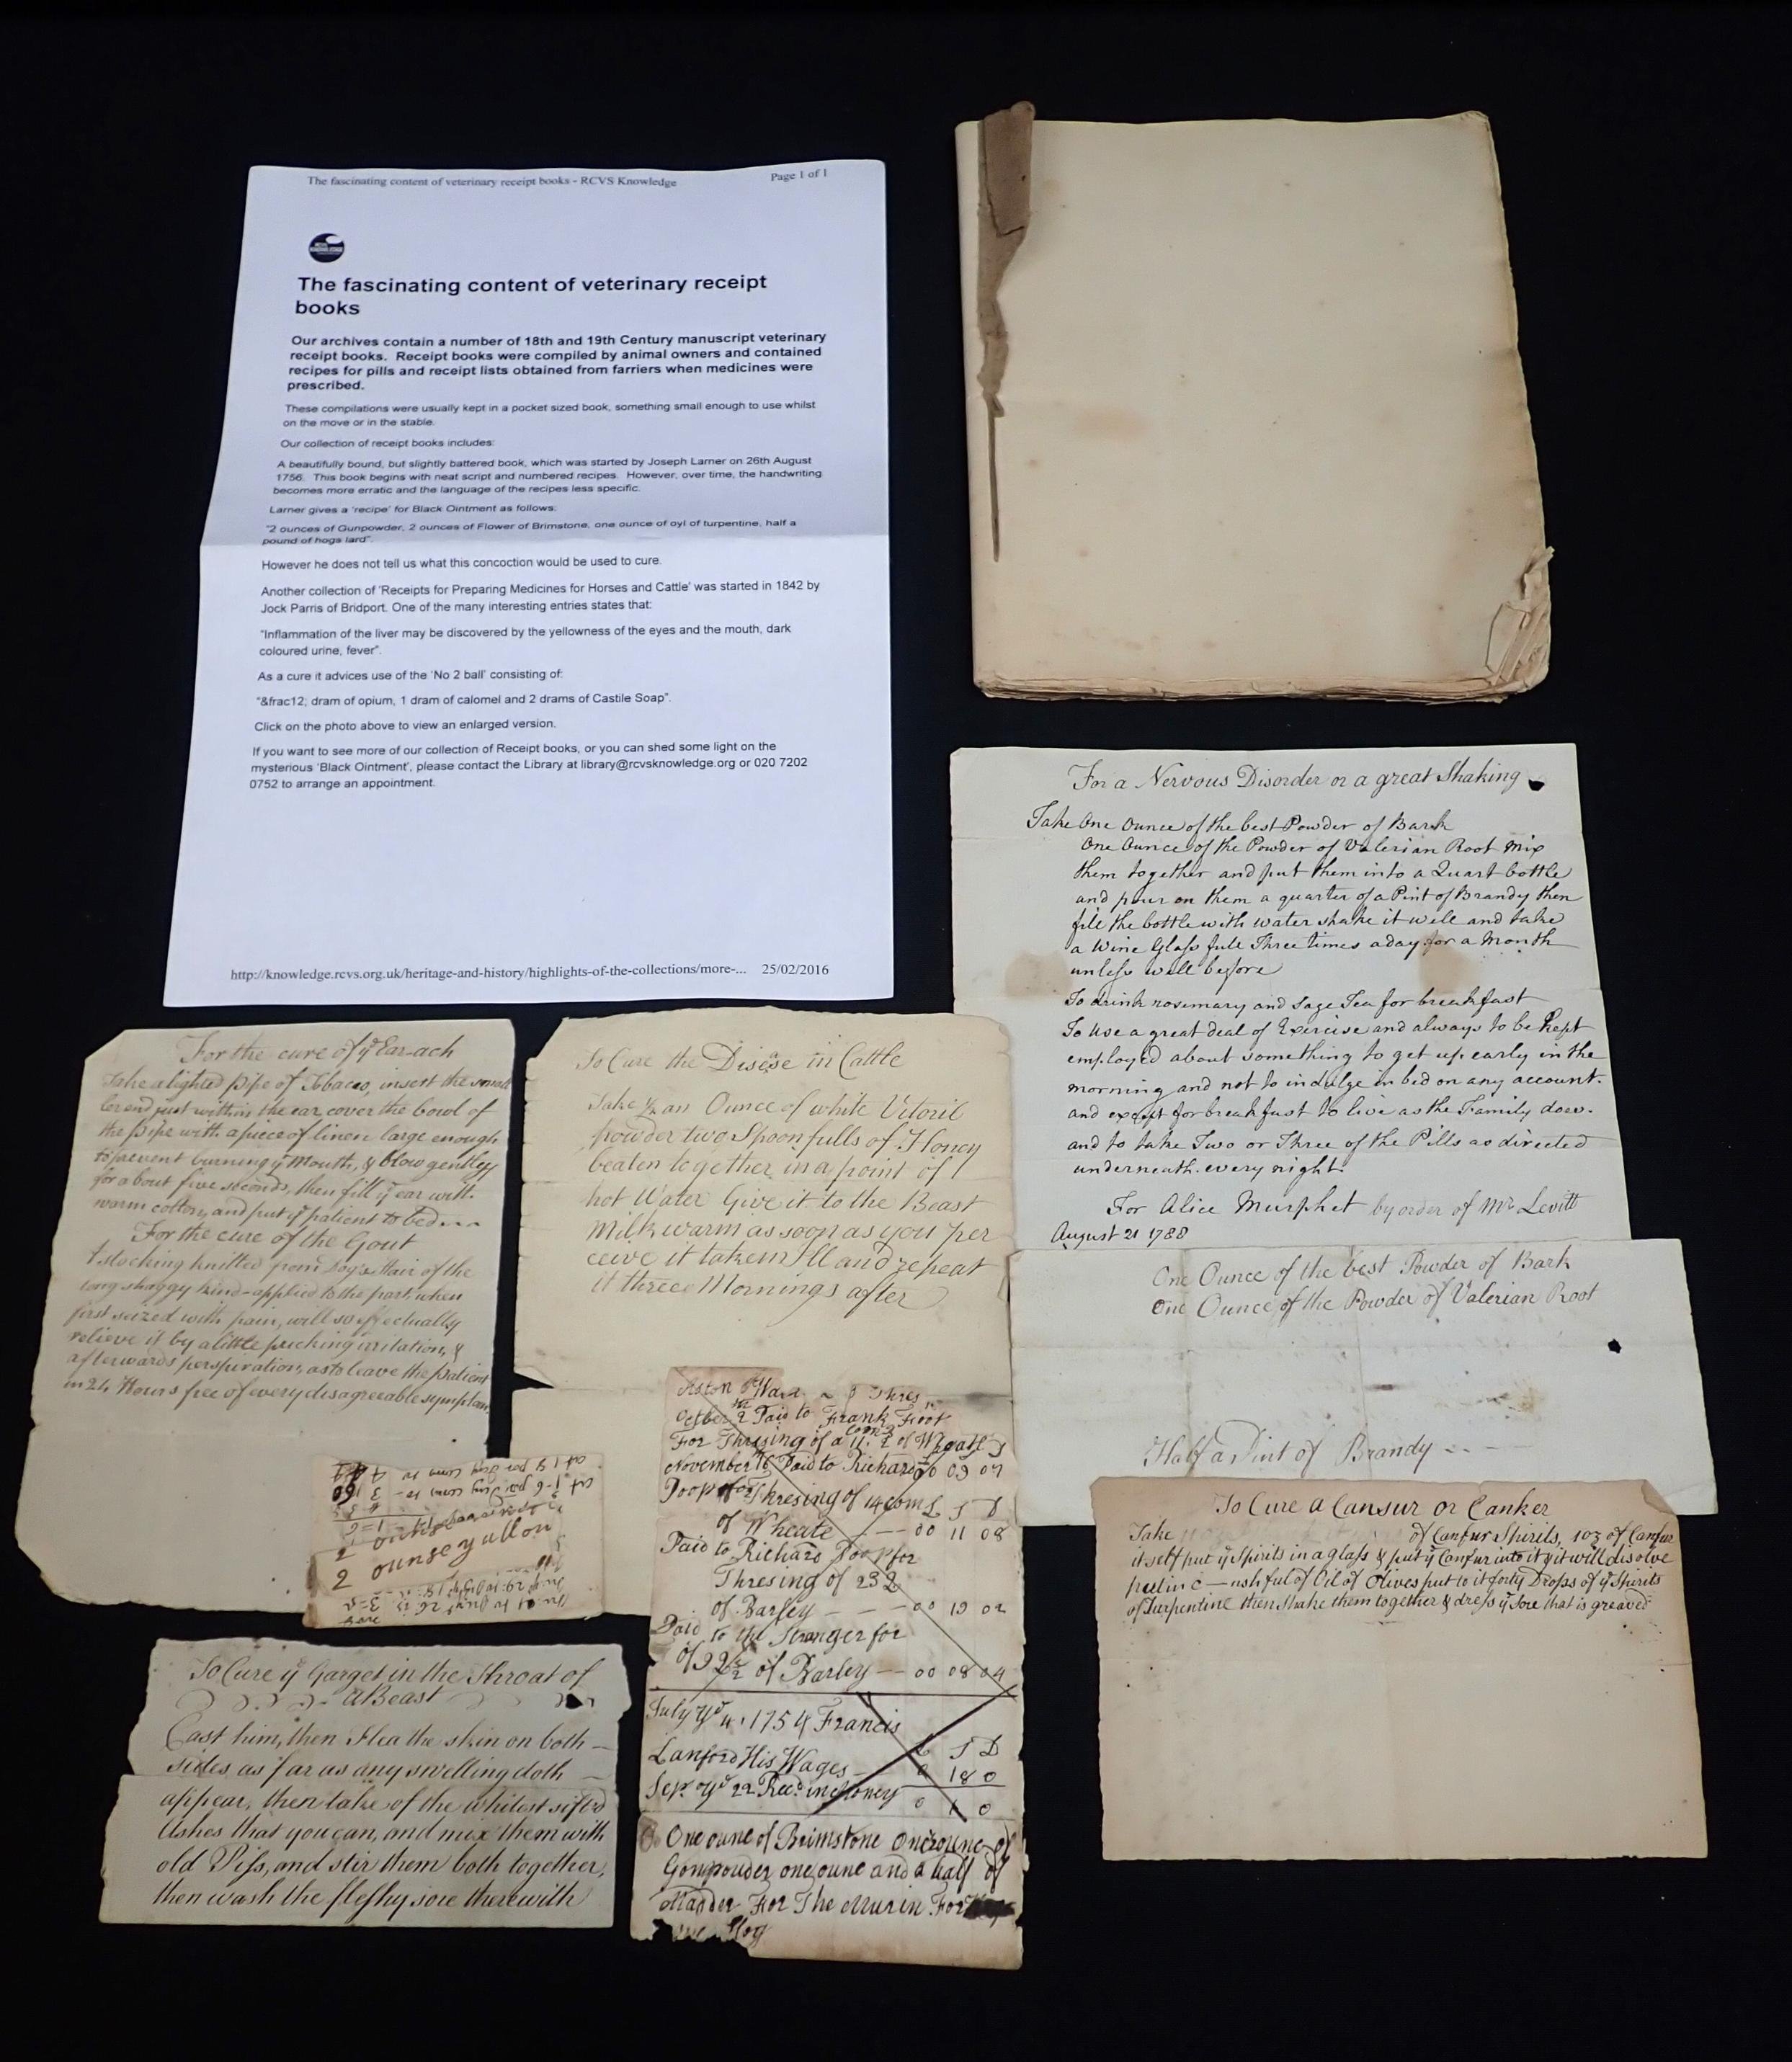 The fascinating content of veterinary receipt books - RCVS Knowledge
Page 1 of 1
The fascinating content of veterinary receipt
books
Our archives contain a number of 18th and 19th Century manuscript veterinary
receipt books. Receipt books were compiled by animal owners and contained
recipes for pills and receipt lists obtained from farriers when medicines were
prescribed.
These compilations were usually kept in a pocket sized book, something small enough to use whilst
on the move or in the stable.
Our collection of receipt books includes:
A beautifully bound, but slightly battered book, which was started by Joseph Larner on 26th August
1756. This book begins with neat script and numbered recipes. However, over time, the handwriting
becomes more erratic and the language of the recipes less specific.
Larner gives a 'recipe' for Black Ointment as follows:
"2 ounces of Gunpowder, 2 ounces of Flower of Brimstone, one ounce of oyl of turpentine, half a
pound of hogs lard".
However he does not tell us what this concoction would be used to cure.
Another collection of 'Receipts for Preparing Medicines for Horses and Cattle' was started in 1842 by
Jock Parris of Bridport. One of the many interesting entries states that:
"Inflammation of the liver may be discovered by the yellowness of the eyes and the mouth, dark
coloured urine, fever".
As a cure it advices use of the 'No 2 ball' consisting of:
"&frac12; dram of opium, 1 dram of calomel and 2 drams of Castile Soap".
Click on the photo above to view an enlarged version.
If you want to see more of our collection of Receipt books, or you can shed some light on the
mysterious 'Black Ointment', please contact the Library at library@rcvsknowledge.org or 020 7202
0752 to arrange an appointment.
http://knowledge.rcvs.org.uk/heritage-and-history/highlights-of-the-collections/more-... 25/02/2016
For a Nervous Disorder or a great Shaking
Take One Ounce of the best Powder of Bark
One Ounce of the Powder of Valerian Root mix
them together and put them into a Quart bottle
and pour on them a quarter of a Pint of Brandy then
fill the bottle with water shake it well and take
a Wine Glass full Three times a day for a Month
unless well before
To drink rosemary and Sage Tea for breakfast
To Use a great deal of Exercise and always to be kept
employed about something to get up early in the
morning and not to indulge in bed on any account.
and except for breakfast to live as the Family dow.
and to take Two or Three of the Pills as directed
underneath every night.
For Alice Murphet by order of Mr Levitt
August 21 1788
One Ounce of the best Powder of Bark
One Ounce of the Powder of Valerian Root
Half a Pint of Brandy
To Cure a Cansur or Canker
Take of Canfur Spirits, 1oz of Canfur
itself put ye Spirits in a glass & put ye Canfur into it & it will disolve
ful of Oil of Olives put to it forty Drops of ye Spirits
of Turpentine then shake them together & dress ye Sore that is greaved
For the cure of ye Ear-ach
Take a lighted pipe of Tobacco, insert the smal
ler end just within the ear cover the bowl of
the pipe with a piece of linen large enough
to prevent burning ye Mouth, & blow gently
for about five seconds, then fill ye ear with
warm cotton, and put ye patient to bed
For the cure of the Gout
A stocking knitted from Dog's Hair of the
long shaggy kind - applied to the part, when
first seized with pain, will so effectually
relieve it by a little pricking irritation, &
afterwards perspiration, as to leave the patient
in 24 Hours free of every disagreeable symptom
To Cure the Disese in Cattle
Take ½ an Ounce of white Vitoril
powder two Spoonfulls of Honey
beaten together in a point of
hot Water Give it to the Beast
Milk warm as soon as you per
ceive it taken Ill and repeat
it threee Mornings after
2
2 ounse gallon
Octber 2 Paid to Frank Froot
For Thresing of a 11
November 16 Paid to Richard 00 09 07
Poop for Thresing of 14 Com L S D
of Wheate 00 11 08
Paid to Richard Poop for
Thresing of 232
of Barley 00 19 02
Paid to the Stranger for
of Barley 00 08 04
July ye 4: 1754 Francis
Lanford His Wages L S D
0 18 0
Sep. ye 22 Recd in Money
To Cure ye Garget in the Throat of
a Beast
Cast him, then Flea the skin on both
sides as far as any swelling doth
appear, then take of the whitest sifted
Ashes that you can, and mix them with
old Piss, and stir them both together,
then wash the fleshy sore therewith
One oune of Brimstone One oune of
Gonpouder one oune and a half of
Madder For The Murin For
Hog